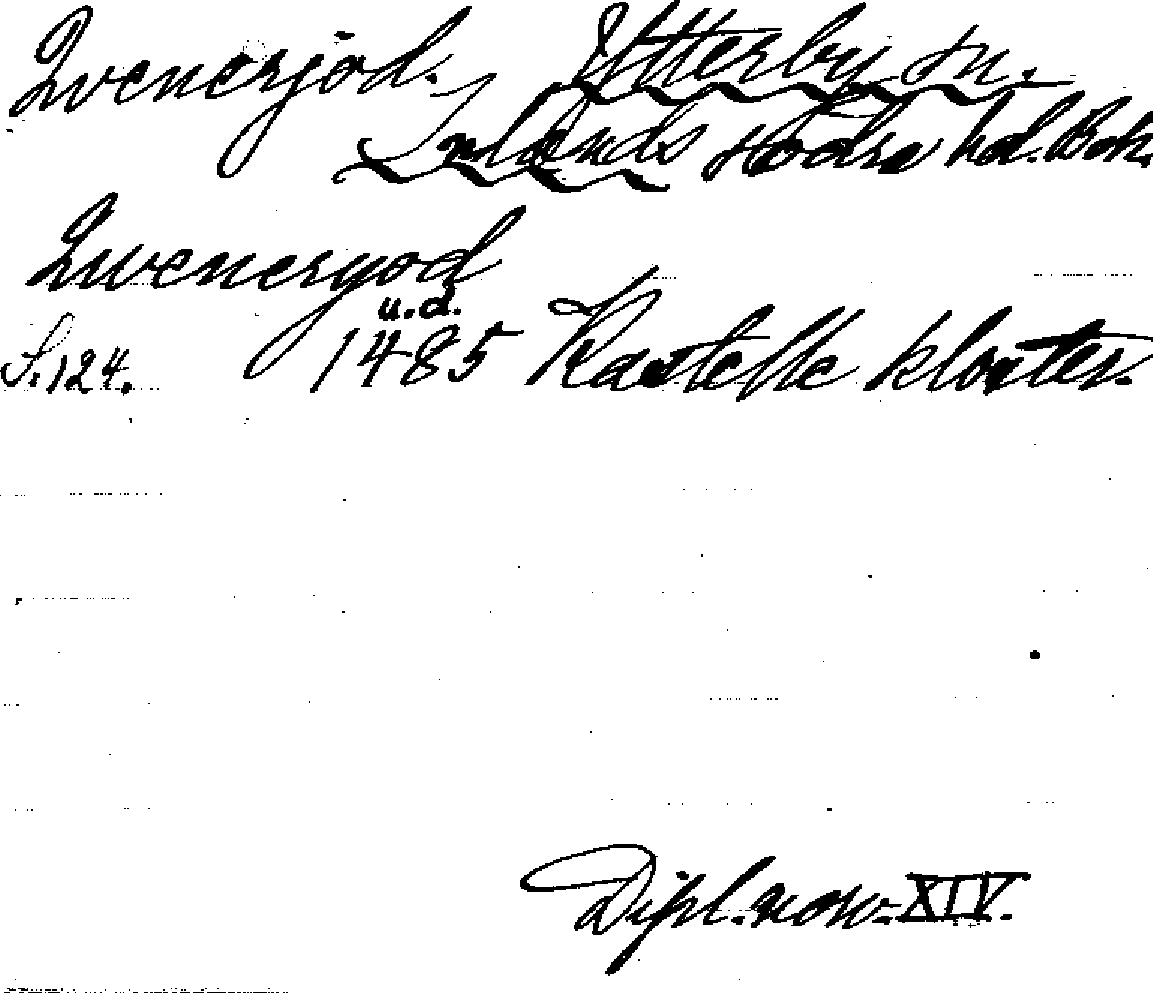 Qvenerjöd. Ytterby sn.
Inlands Södra hd. Boh.
Quveneryod
u.d.
S.124. 1485 Kastelle kloster.
Dipl. norv. XIV.